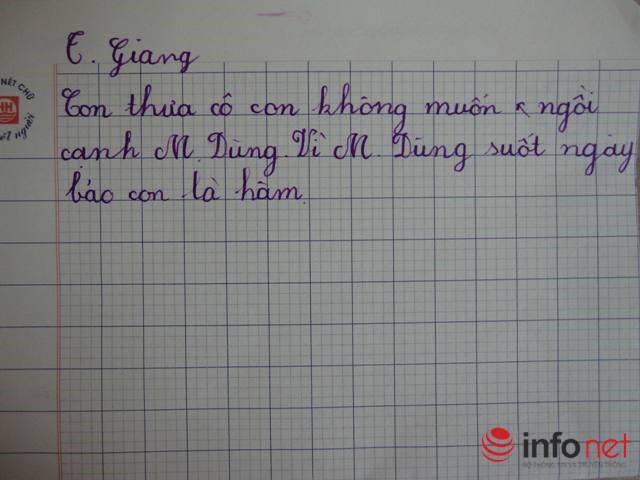 T. Giang
Con thưa cô con không muốn ngồi
cạnh M. Dũng. Vì M. Dũng suốt ngày
bảo con là hâm.
NÉT CHỮ
NẾT NGƯỜI
infonet
BỘ THÔNG TIN VÀ TRUYỀN THÔNG